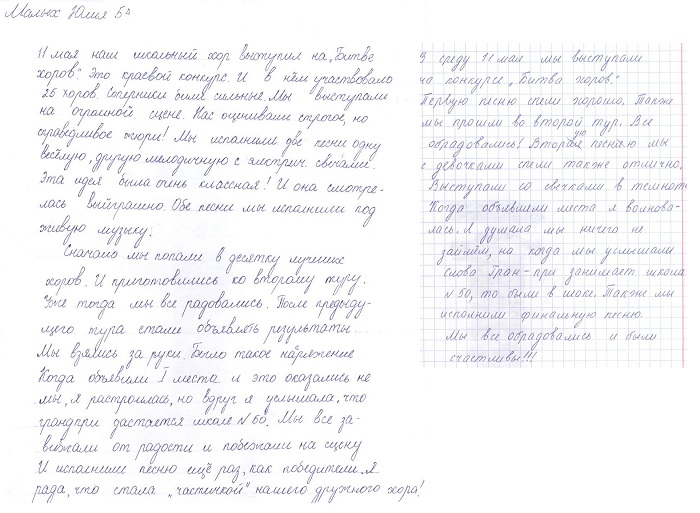 Малых Юлия 5А
11 мая наш шкальный хор выступил на „Битве
хоров". Это краевой конкурс. И в нём участвовало
25 хоров. Соперники были сильные. Мы выступали
на огромной сцене. Нас оценивали строгое, но
справедливое жюри! Мы исполнили две песни одну
весёлую, другую мелодичную с электрич. свечами.
Эта идея была очень классная! И она смотре-
лась выйграшно. Обе песни мы исполнили под
живую музыку.
Сначало мы попали в десятку лучших
хоров. И приготовились ко второму туру.
Уже тогда мы все радовались. После предыду-
щего тура стали объявлять результаты
Мы взялись за руки. Было такое напряжение
Когда объявили I места и это оказались не
мы, я растроилась, но вдруг я услышала, что
грандпри дастается школе № 50. Мы все за-
визжали от радости и побежали на сцену
И исполнили песню ещё раз, как победители. Я
рада, что стала „частичкой" нашего дружного хора!
В среду 11 мая мы выступали
на конкурсе „Битва хоров".
Первую песню спели хорошо. Также
мы прошли во второй тур. Все
обрадовались! Вторую песню мы
с девочками спели также отлично.
Выступали со свечками в темноте
Когда объявляли места я волнова-
лась. Я думала мы ничего не
займём, но когда мы услышали
слова Гран-при занимает школа
№ 50, то были в шоке. Также мы
исполнили финальную песню.
Мы все обрадовались и были
счастливы!!!